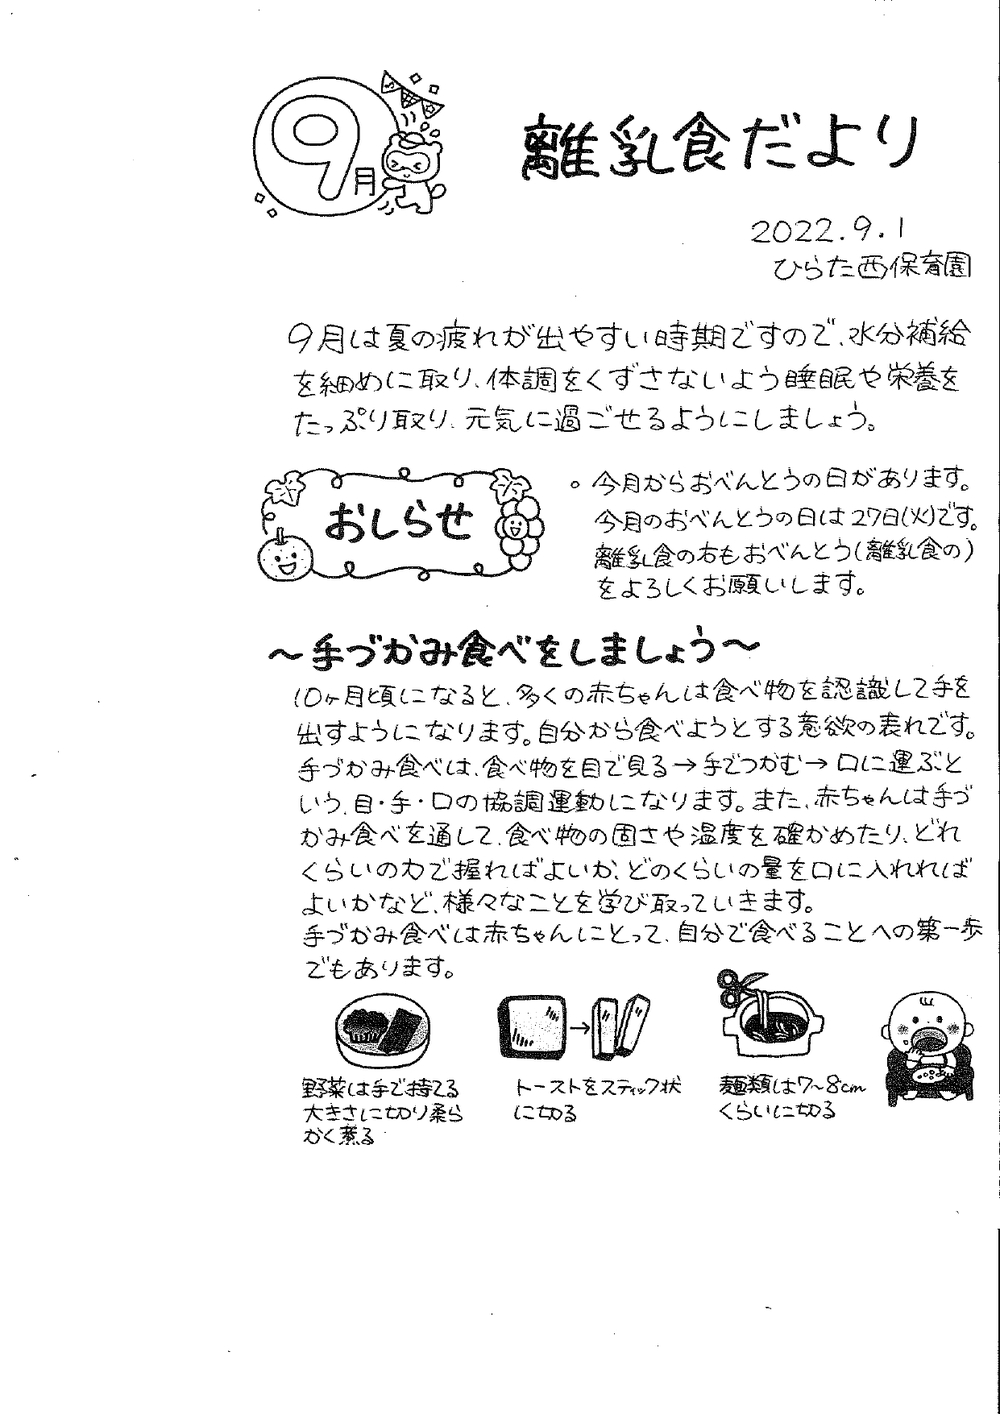 9月
離乳食だより
2022.9.1
ひらた西保育園
9月は夏の疲れが出やすい時期ですので、水分補給
を細めに取り、体調をくずさないよう睡眠や栄養を
たっぷり取り、元気に過ごせるようにしましょう。
おしらせ
○ 今月からおべんとうの日があります。
今月のおべんとうの日は27日(火)です。
離乳食の方もおべんとう(離乳食の)
をよろしくお願いします。
～手づかみ食べをしましょう～
10ヶ月頃になると、多くの赤ちゃんは食べ物を認識して手を
出すようになります。自分から食べようとする意欲の表れです。
手づかみ食べは、食べ物を目で見る→手でつかむ→口に運ぶと
いう、目・手・口の協調運動になります。また、赤ちゃんは手づ
かみ食べを通して、食べ物の固さや温度を確かめたり、どれ
くらいの力で握ればよいか、どのくらいの量を口に入れれば
よいかなど、様々なことを学び取っていきます。
手づかみ食べは赤ちゃんにとって、自分で食べることへの第一歩
でもあります。
野菜は手で持てる
大きさに切り柔ら
かく煮る
トーストをスティック状
に切る
麺類は7～8cm
くらいに切る